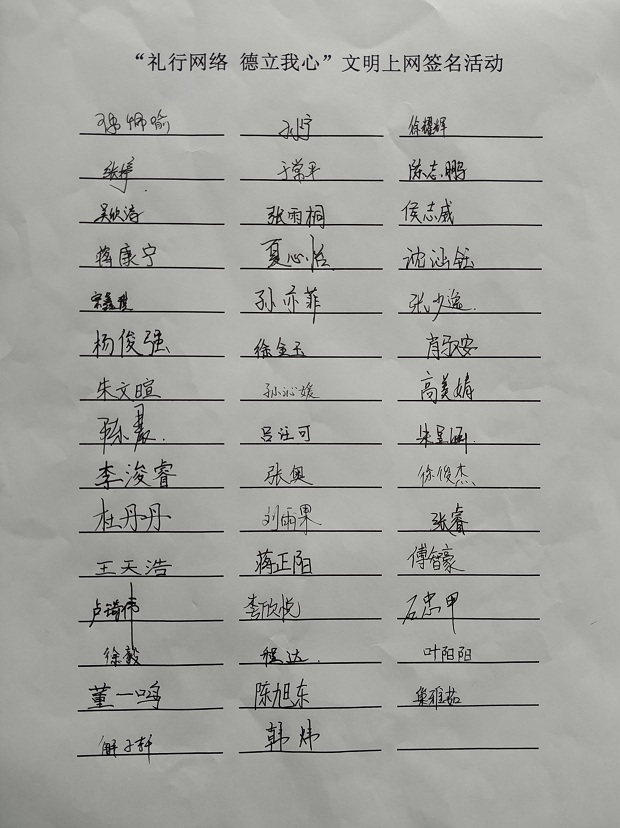 “礼行网络 德立我心”文明上网签名活动
孙宁 徐耀辉
张婷 于常平 陈志鹏
吴欣涛 张雨桐 侯志威
蒋康宁 夏心怡 沈涵钰
宋鑫 孙亦菲 张少逸
杨俊强 徐金玉 肖子安
朱文暄 孙沁媛 高美婧
韩晨 吕注可
李浚睿 张奥 徐俊杰
杜丹丹 刘雨果 张睿
王天浩 蒋正阳 傅智豪
卢琦伟 李欣悦 石忠甲
徐毅 程达 叶阳阳
董一鸣 陈旭东
解子轩 韩炜